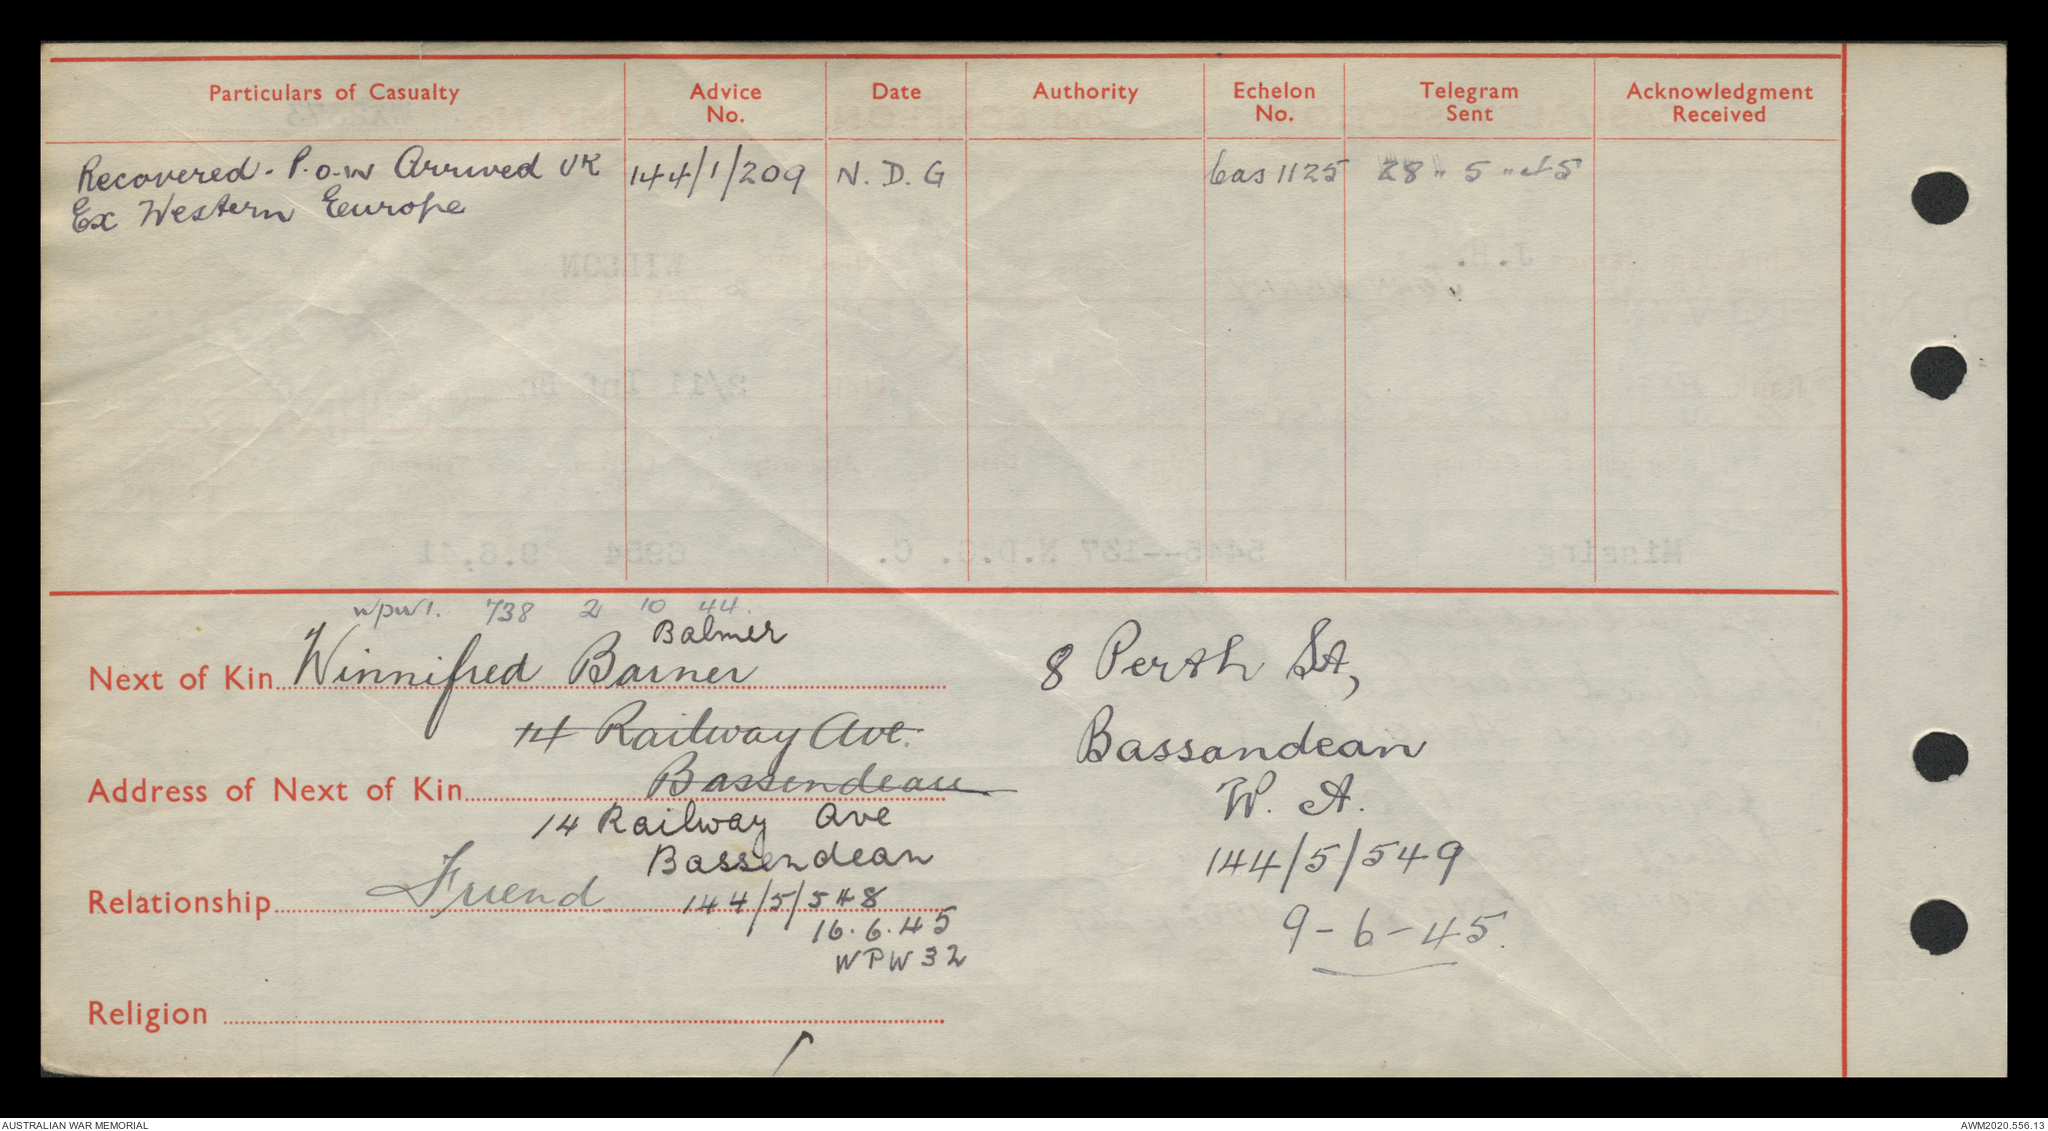 Particulars of Casualty
Advice No.
Date
Authority
Echelon No.
Telegram Sent
Acknowledgment Received
Recovered - P.o.w Arrived UK 144/1/209 N.D.G Cas 1125 28 " 5 " 45
Ex Western Europe
wpw1. 738 2 10 44.
Balmer
Next of Kin Winnifred Barner
14 Railway Ave.
Address of Next of Kin Bassendean
14 Railway Ave
Bassendean
Relationship Friend 144/5/548
16.6.45
WPW 32
Religion
8 Perth St,
Bassandean
W. A.
144/5/549
9-6-45.
AUSTRALIAN WAR MEMORIAL
AWM2020.556.13